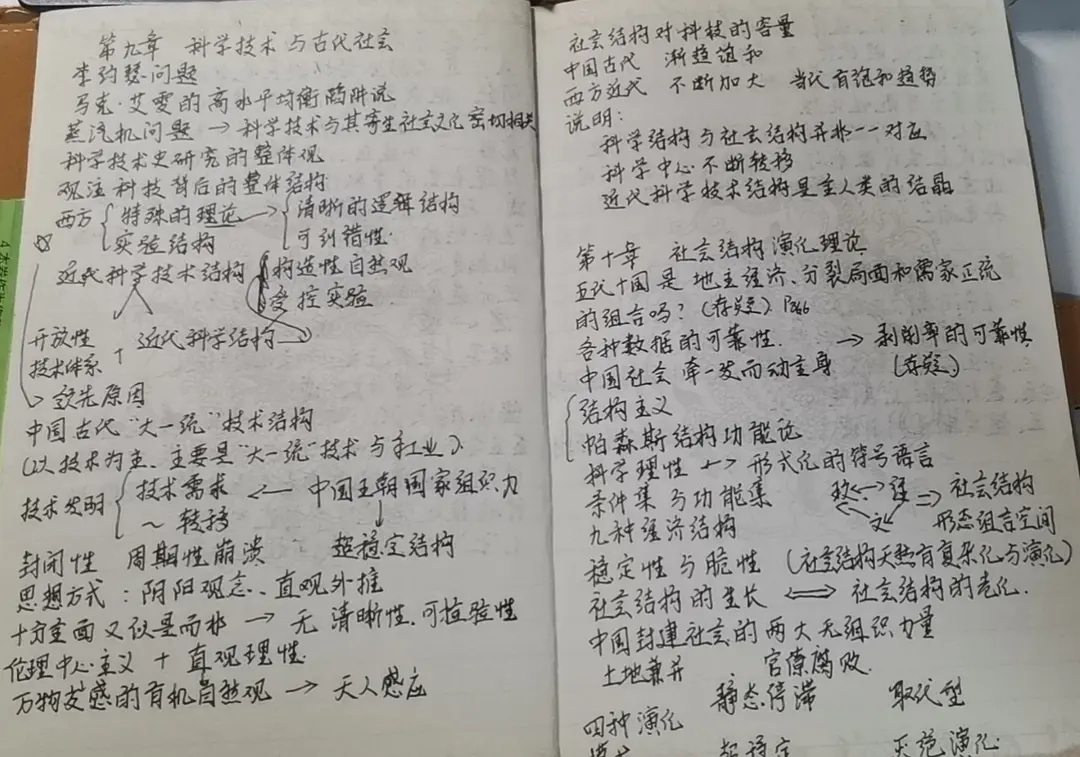 第九章 科学技术与古代社会
李约瑟问题
马克·艾雯的高水平均衡陷阱说
蒸汽机问题 → 科学技术与其寄生社会文化密切相关
科学技术史研究的整体观
观注科技背后的整体结构
西方 { 特殊的理论 → { 清晰的逻辑结构
实验结构 可纠错性
近代科学技术结构 构造性自然观
受控实验
开放性 + 近代科学结构
技术体系
→ 领先原因
中国古代“大一统”技术结构
(以技术为主、主要是“大一统”技术与手工业)
技术发明 { 技术需求 ← 中国王朝国家组织力
～ 转移 ↓
封闭性 周期性崩溃 超稳定结构
思想方式：阴阳观念、直观外推
十分全面又似是而非 → 无清晰性、可检验性
伦理中心主义 + 直观理性
万物交感的有机自然观 → 天人感应
社会结构对科技的容量
中国古代 渐趋饱和
西方近代 不断加大 当代有饱和趋势
说明：
科学结构与社会结构并非一一对应
科学中心不断转移
近代科学技术结构是全人类的结晶
第十章 社会结构演化理论
五代十国是地主经济、分裂局面和儒家正统
的组合吗？(存疑) P266
各种数据的可靠性. → 剥削率的可靠性
中国社会牵一发而动全身 (存疑)
{ 结构主义
帕森斯结构功能论
科学理性 ↔ 形式化的符号语言
条件集与功能集 政 ↔ 经 ⇒ 社会结构
九种经济结构 文 形态组合空间
稳定性与脆性 (社会结构天然有复杂化与演化)
社会结构的生长 ⟺ 社会结构的老化.
中国封建社会的两大无组织力量
土地兼并 官僚腐败.
四种演化 静态停滞 取代型
超稳定 灭绝演化